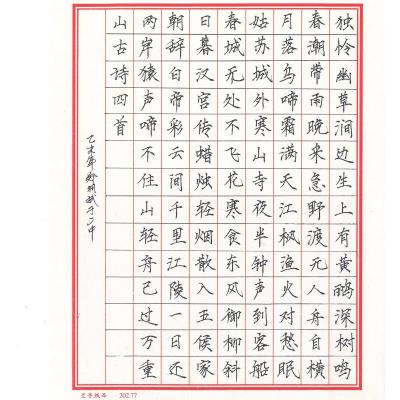 独怜幽草涧边生上有黄鹂深树鸣
春潮带雨晚来急野渡无人舟自横
月落乌啼霜满天江枫渔火对愁眠
姑苏城外寒山寺夜半钟声到客船
春城无处不飞花寒食东风御柳斜
日暮汉宫传蜡烛轻烟散入五侯家
朝辞白帝彩云间千里江陵一日还
两岸猿声啼不住山轻舟已过万重
山古诗四首
乙未年
兰亭纸品 202.77